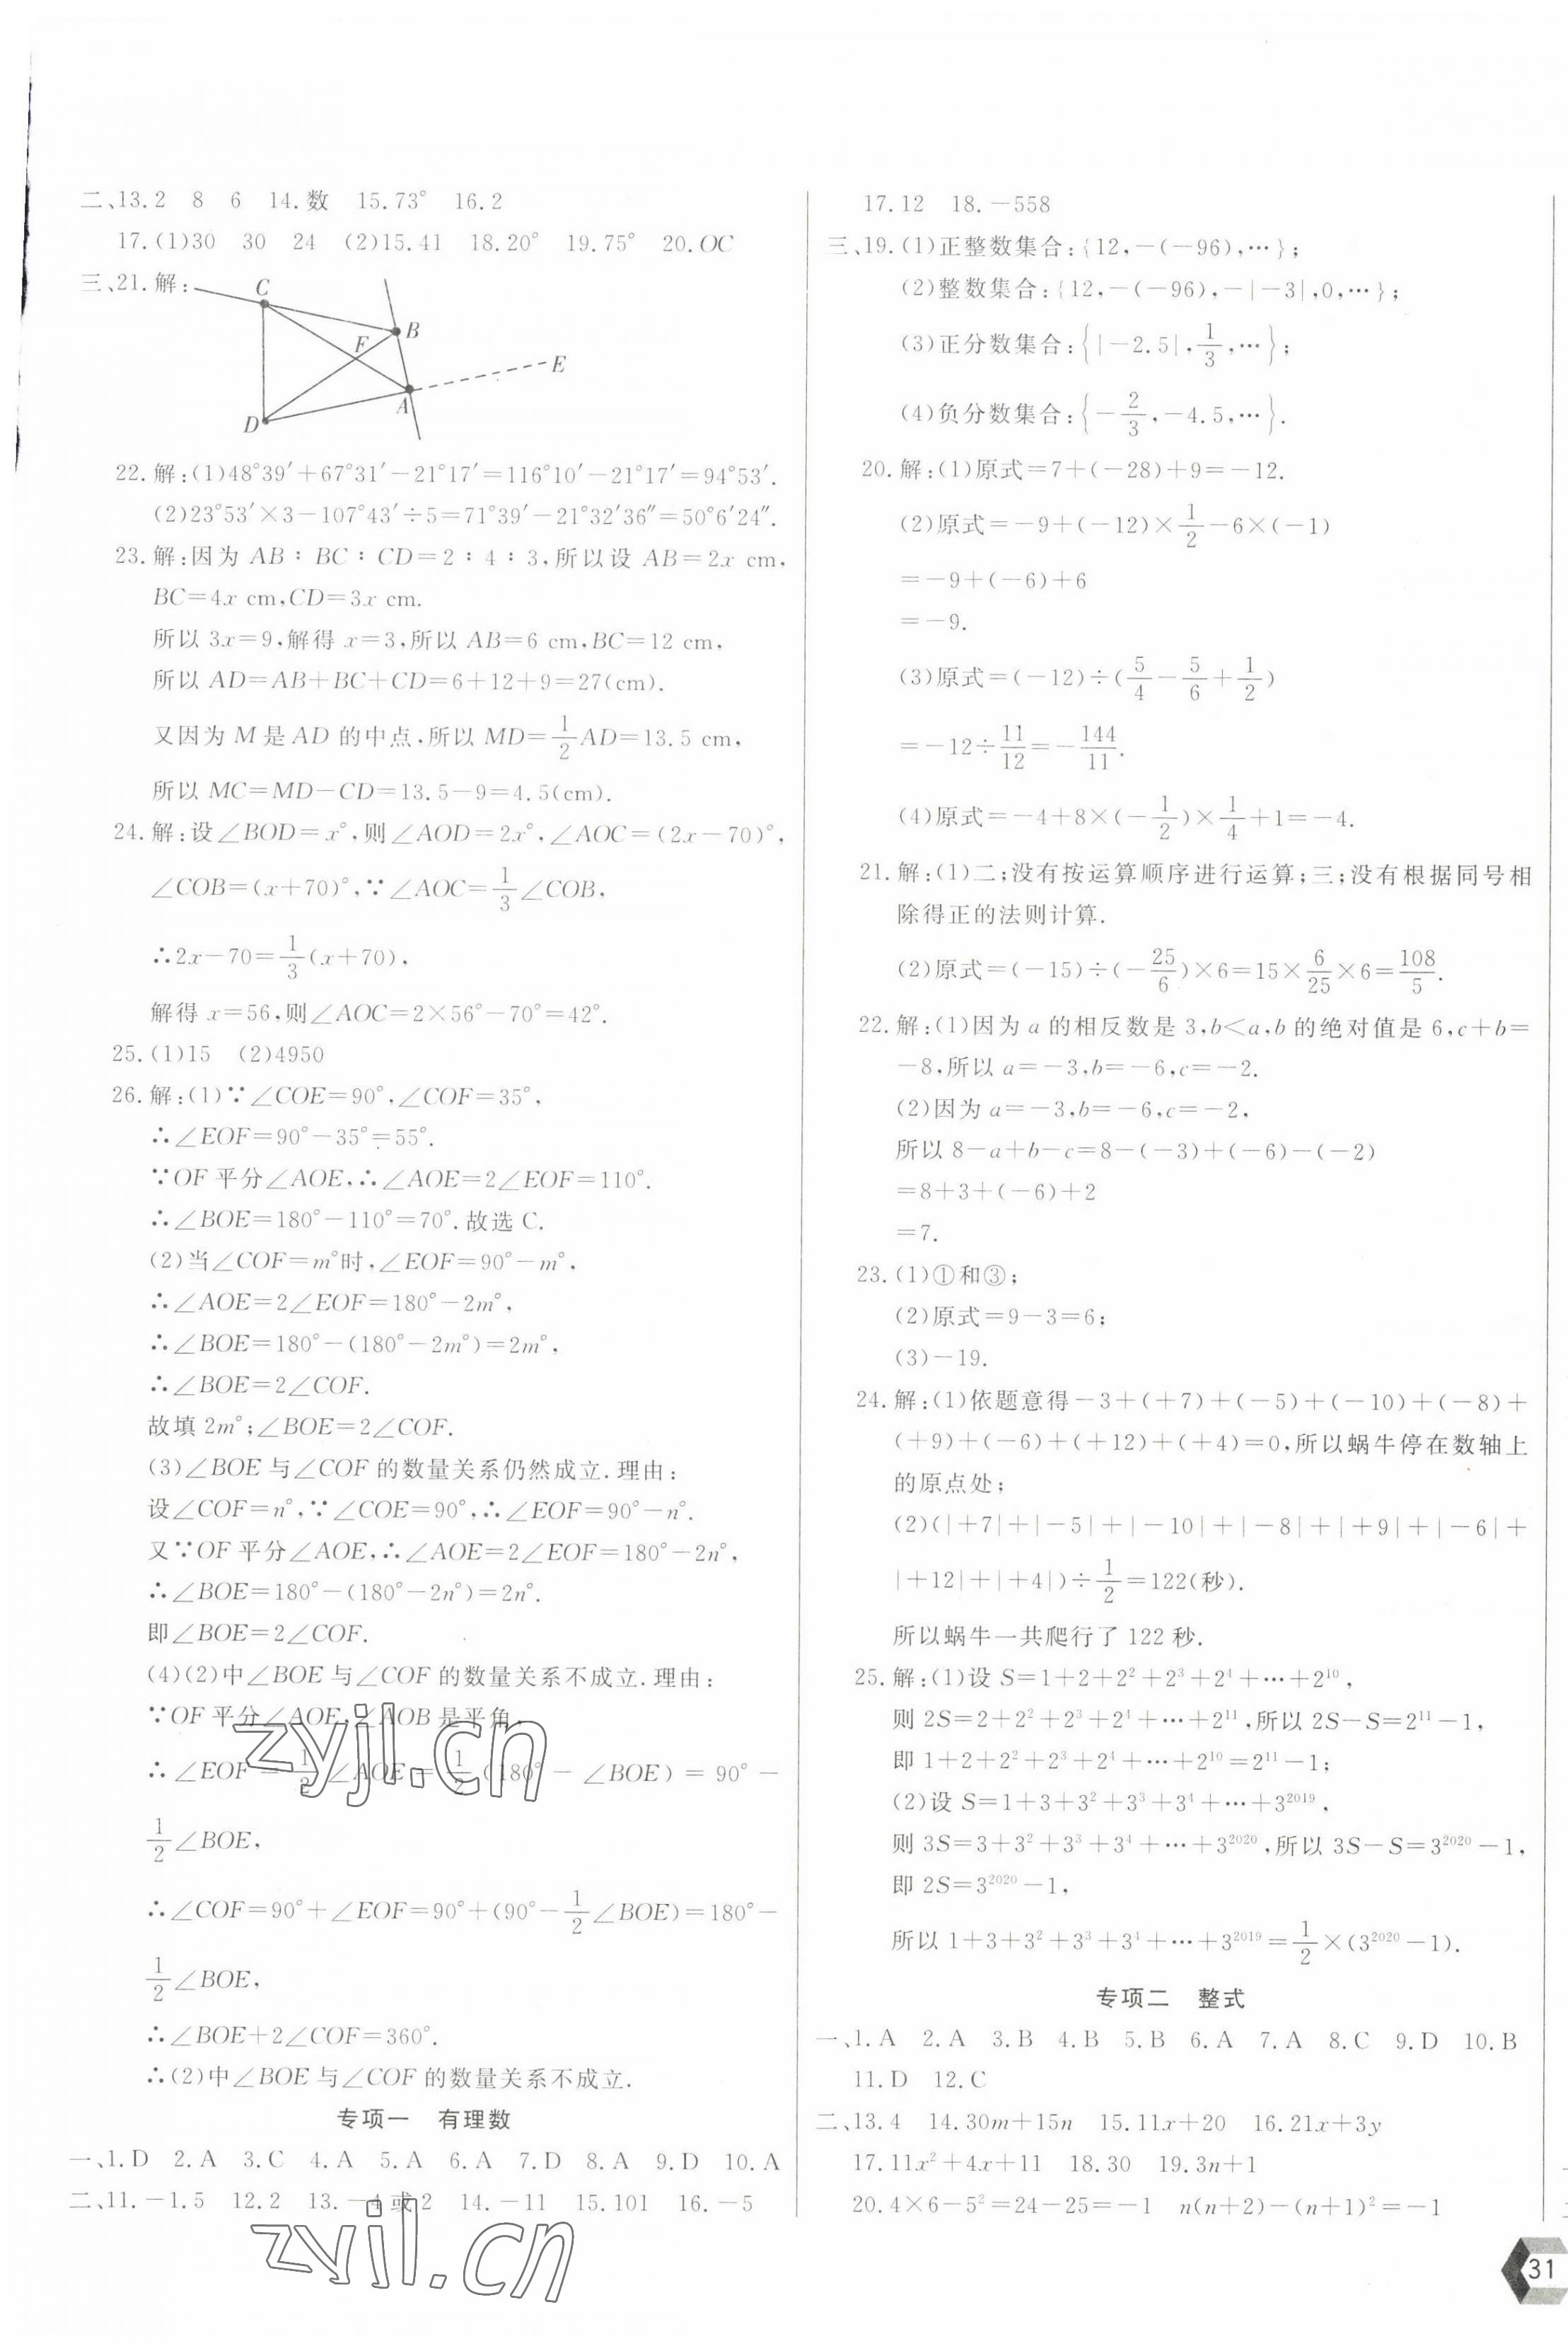 二、13.2 8 6 14.数 15.73° 16.2
17.(1)30 30 24 (2)15.41 18.20° 19.75° 20.OC
三、21.解:
C
B
F
E
A
D
22.解:(1)48°39′+67°31′-21°17′=116°10′-21°17′=94°53′.
(2)23°53′×3-107°43′÷5=71°39′-21°32′36″=50°6′24″.
23.解:因为 AB∶BC∶CD=2∶4∶3,所以设 AB=2x cm,
BC=4x cm,CD=3x cm.
所以 3x=9,解得 x=3,所以 AB=6 cm,BC=12 cm,
所以 AD=AB+BC+CD=6+12+9=27(cm).
又因为 M 是 AD 的中点,所以 MD=1/2AD=13.5 cm,
所以 MC=MD-CD=13.5-9=4.5(cm).
24.解:设∠BOD=x°,则∠AOD=2x°,∠AOC=(2x-70)°,
∠COB=(x+70)°,∵∠AOC=1/3∠COB,
∴2x-70=1/3(x+70),
解得 x=56,则∠AOC=2×56°-70°=42°.
25.(1)15 (2)4950
26.解:(1)∵∠COE=90°,∠COF=35°,
∴∠EOF=90°-35°=55°.
∵OF 平分∠AOE,∴∠AOE=2∠EOF=110°.
∴∠BOE=180°-110°=70°.故选 C.
(2)当∠COF=m°时,∠EOF=90°-m°,
∴∠AOE=2∠EOF=180°-2m°,
∴∠BOE=180°-(180°-2m°)=2m°,
∴∠BOE=2∠COF.
故填 2m°;∠BOE=2∠COF.
(3)∠BOE 与∠COF 的数量关系仍然成立.理由:
设∠COF=n°,∵∠COE=90°,∴∠EOF=90°-n°.
又∵OF 平分∠AOE,∴∠AOE=2∠EOF=180°-2n°,
∴∠BOE=180°-(180°-2n°)=2n°.
即∠BOE=2∠COF.
(4)(2)中∠BOE 与∠COF 的数量关系不成立.理由:
∵OF 平分∠AOE,∠AOB 是平角,
∴∠EOF=1/2∠AOE=1/2(180°-∠BOE)=90°-
1/2∠BOE,
∴∠COF=90°+∠EOF=90°+(90°-1/2∠BOE)=180°-
1/2∠BOE,
∴∠BOE+2∠COF=360°.
∴(2)中∠BOE 与∠COF 的数量关系不成立.
专项一 有理数
一、1.D 2.A 3.C 4.A 5.A 6.A 7.D 8.A 9.D 10.A
二、11.-1.5 12.2 13.-4或2 14.-11 15.101 16.-5
zyjl.cn
zyjl.cn
17.12 18.-558
三、19.(1)正整数集合:{12,-(-96),…};
(2)整数集合:{12,-(-96),-|-3|,0,…};
(3)正分数集合:{|-2.5|,1/3,…};
(4)负分数集合:{-2/3,-4.5,…}.
20.解:(1)原式=7+(-28)+9=-12.
(2)原式=-9+(-12)×1/2-6×(-1)
=-9+(-6)+6
=-9.
(3)原式=(-12)÷(5/4-5/6+1/2)
=-12÷11/12=-144/11.
(4)原式=-4+8×(-1/2)×1/4+1=-4.
21.解:(1)二;没有按运算顺序进行运算;三;没有根据同号相
除得正的法则计算.
(2)原式=(-15)÷(-25/6)×6=15×6/25×6=108/5.
22.解:(1)因为 a 的相反数是 3,b<a,b 的绝对值是 6,c+b=
-8,所以 a=-3,b=-6,c=-2.
(2)因为 a=-3,b=-6,c=-2,
所以 8-a+b-c=8-(-3)+(-6)-(-2)
=8+3+(-6)+2
=7.
23.(1)①和③;
(2)原式=9-3=6;
(3)-19.
24.解:(1)依题意得-3+(+7)+(-5)+(-10)+(-8)+
(+9)+(-6)+(+12)+(+4)=0,所以蜗牛停在数轴上
的原点处;
(2)(|+7|+|-5|+|-10|+|-8|+|+9|+|-6|+
|+12|+|+4|)÷1/2=122(秒).
所以蜗牛一共爬行了 122 秒.
25.解:(1)设 S=1+2+2²+2³+2⁴+…+2¹⁰,
则 2S=2+2²+2³+2⁴+…+2¹¹,所以 2S-S=2¹¹-1,
即 1+2+2²+2³+2⁴+…+2¹⁰=2¹¹-1;
(2)设 S=1+3+3²+3³+3⁴+…+3²⁰¹⁹,
则 3S=3+3²+3³+3⁴+…+3²⁰²⁰,所以 3S-S=3²⁰²⁰-1,
即 2S=3²⁰²⁰-1,
所以 1+3+3²+3³+3⁴+…+3²⁰¹⁹=1/2×(3²⁰²⁰-1).
专项二 整式
一、1.A 2.A 3.B 4.B 5.B 6.A 7.A 8.C 9.D 10.B
11.D 12.C
二、13.4 14.30m+15n 15.11x+20 16.21x+3y
17.11x²+4x+11 18.30 19.3n+1
20.4×6-5²=24-25=-1 n(n+2)-(n+1)²=-1
31